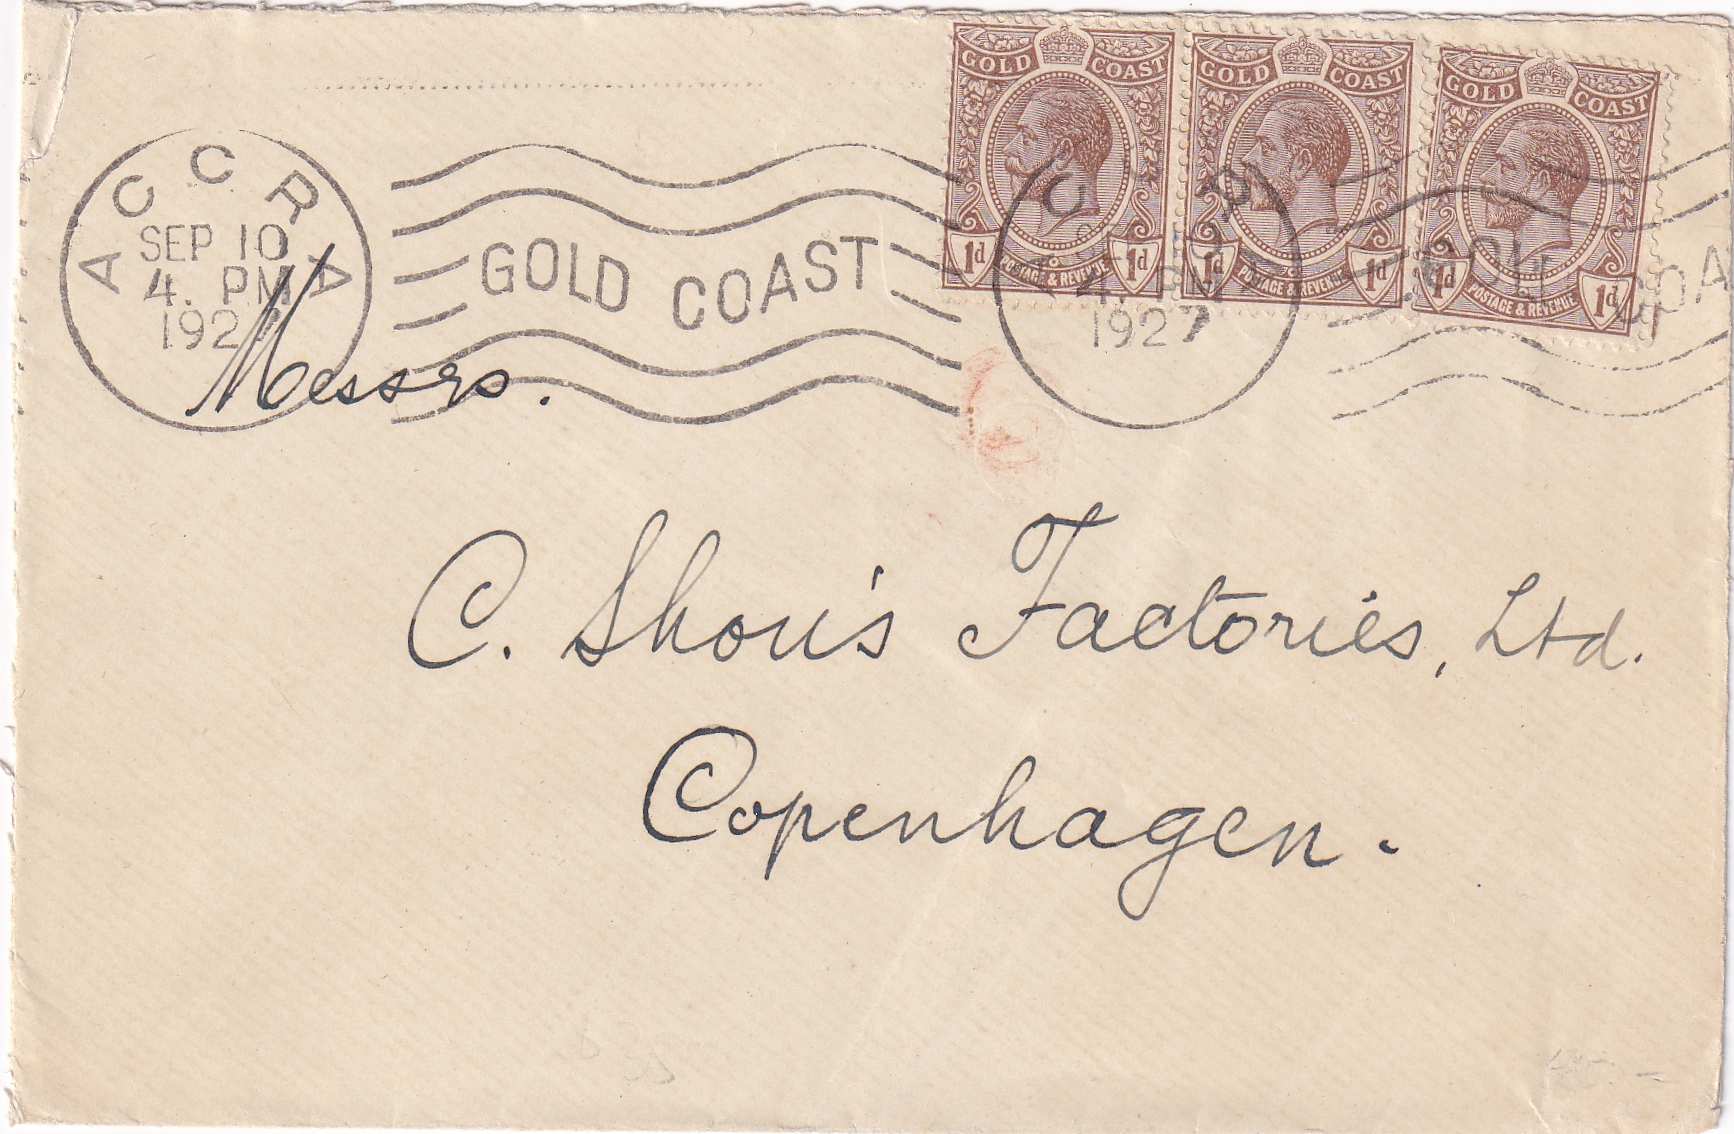 GOLD COAST
1d 1d
POSTAGE & REVENUE
GOLD COAST
1d 1d
POSTAGE & REVENUE
GOLD COAST
1d 1d
POSTAGE & REVENUE
ACCRA
SEP 10
4. PM
192
GOLD COAST
PM
1927
Messrs.
C. Shou's Factories, Ltd.
Copenhagen.